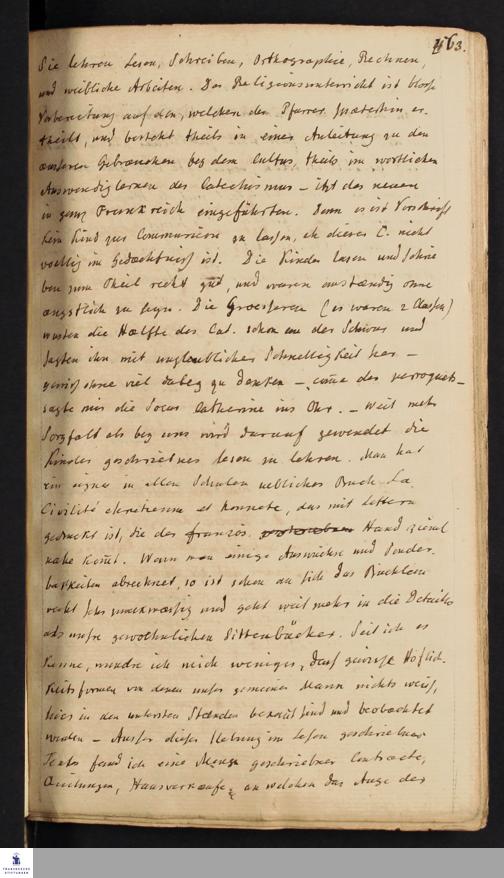 163.
Sie lehren Lesen, Schreiben, Orthographie, Rechnen,
und weibliche Arbeiten. Der Religionsunterricht ist bloss
Vorbereitung auf den, welchen der Pfarrer er-
theilt, und besteht theils in einer Anleitung zu den
aeussern Gebraeuchen bey dem Cultus, theils im wortlichen
Auswendiglernen des Catechismus – itzt des neuen
in ganz Frankreich eingeführten. Denn es ist Vorschrift
kein Kind zur Communion zu lassen, eh dieser C. nicht
voellig im Gedaechtniss ist. Die Kinder lasen und schrie
ben zum Theil recht gut, und waren anstaendig ohne
aengstlich zu seyn. Die Groesseren (es waren 2 Classen)
wusten die Haelfte des Cat. schon und
sagten ihn mit unglaublicher Schnelligkeit her –
gewiss ohne viel dabey zu denken – comme des perroquets –
sagte mir die Soeur Catherine ins Ohr. – Weit mehr
Sorgfalt als bey uns wird darauf gewendet die
Kinder geschriebnes lesen zu lehren. Man hat
ein eignes in allen Schulen uebliches Buch La
Civilité chretienne et honnete, das mit Lettern
gedruckt ist, die der französ. Hand ziemlich
nahe kom̄t. Wenn man einige Auswüchse und Sonder-
barkeiten abrechnet, so ist schon an sich das Büchlein
recht sehr zweckmaessig und geht weit mehr in die Details
als unsre gewoehnlichen Sittenbücher. Seit ich es
kenne, wundre ich mich weniger, dass gewisse Höflich-
keitsformen von denen unser gemeiner Mann nichts weiss,
hier in den untersten Staenden bekan̄t sind und beobachtet
werden – Ausser dieser Uebung im Lesen geschriebner
Texte fand ich eine Menge geschriebner Contracte,
Quittungen, Hausverkaeufe, an welchen das Auge der
FRANCKESCHE
STIFTUNGEN